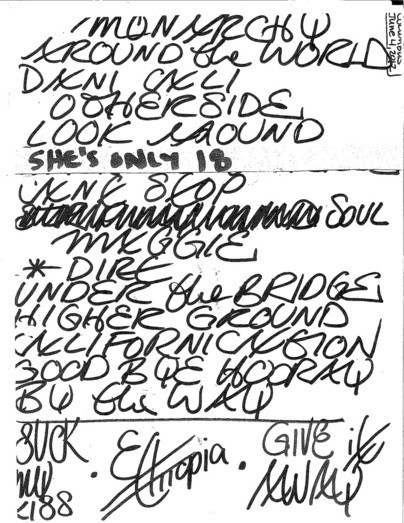 MONARCHY
AROUND the WORLD
DANI CALI
OTHERSIDE
LOOK AROUND
SHE'S ONLY 18
CANT STOP
SOUL
MAGGIE
* DIRE
UNDER the BRIDGE
HIGHER GROUND
CALIFORNICATION
GOOD BYE HOORAY
BY the WAY
SUCK
MY
KISS
· Ethiopia ·
GIVE it
AWAY
June 4, 2012